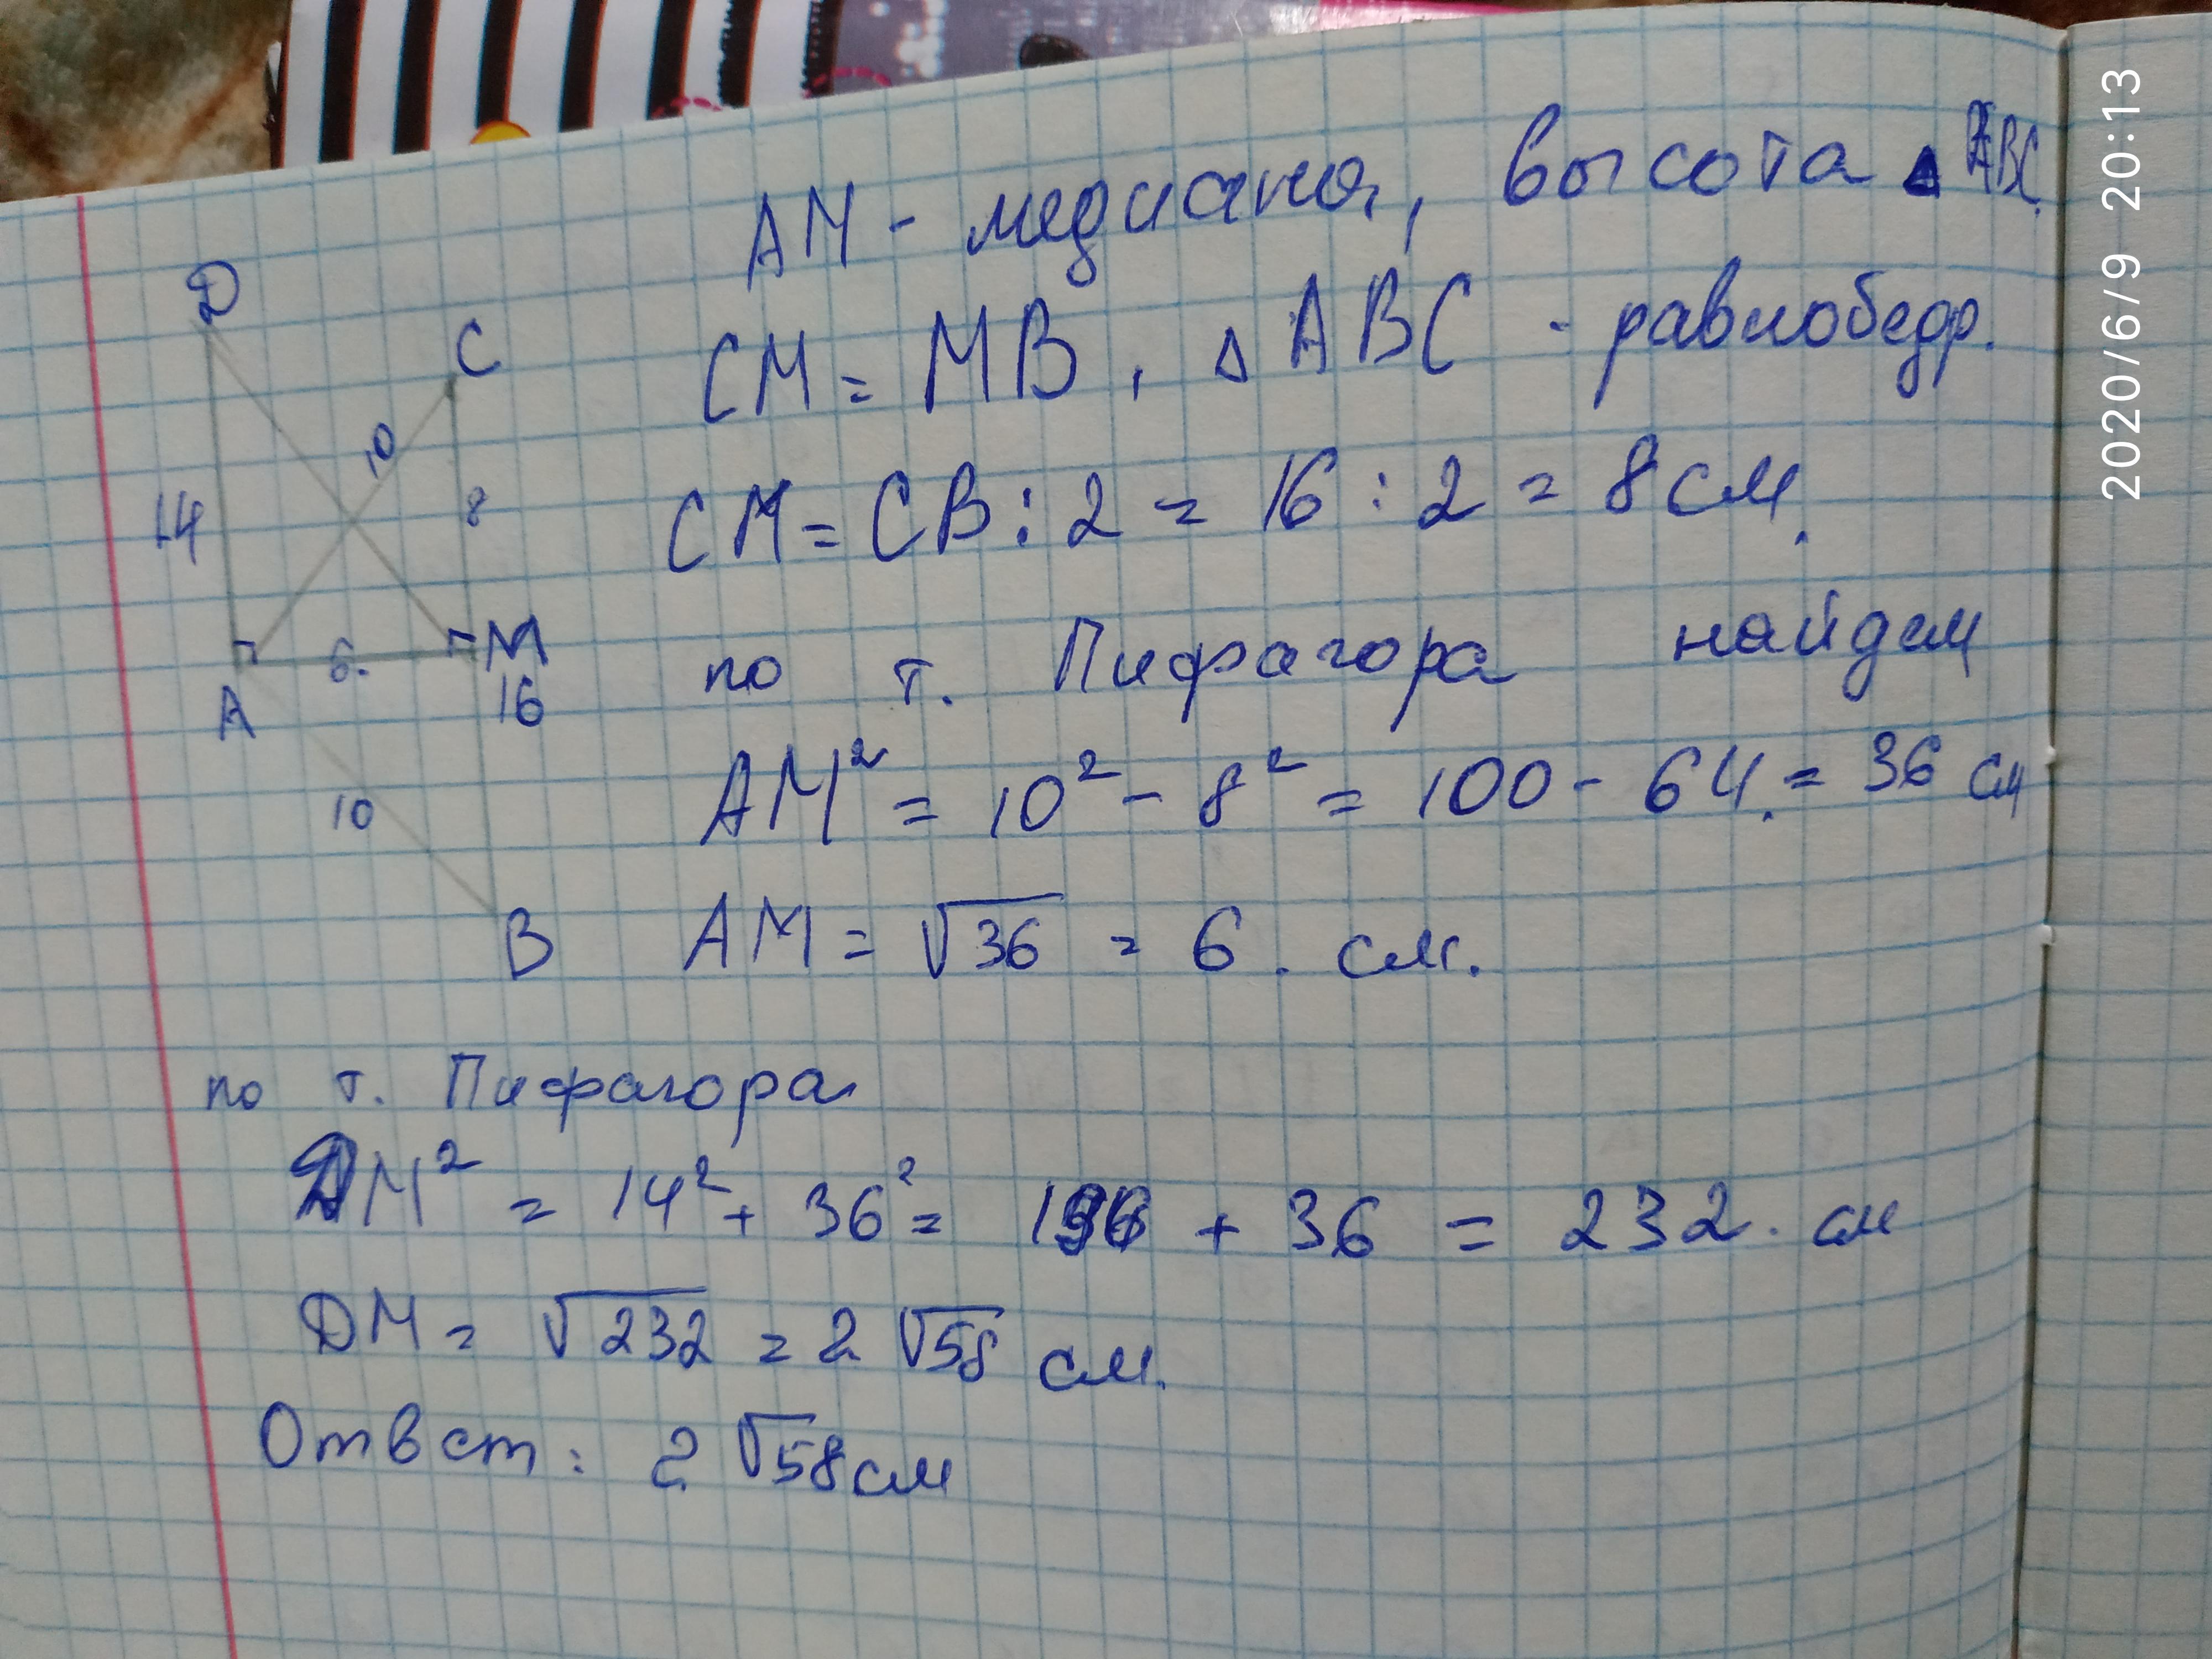 АМ - медиана, высота △ ABC.
CM = MB, △ ABC - равнобедр.
CM = CB : 2 = 16 : 2 = 8 см.
по т. Пифагора найдем
AM² = 10² - 8² = 100 - 64. = 36 см
AM = √36 = 6. см.
D
C
10
14
8
M
6.
A
16
10
B
по т. Пифагора
DM² = 14² + 36² = 196 + 36 = 232. см
DM = √232 = 2 √58 см.
Ответ: 2 √58 см
2020/6/9 20:13